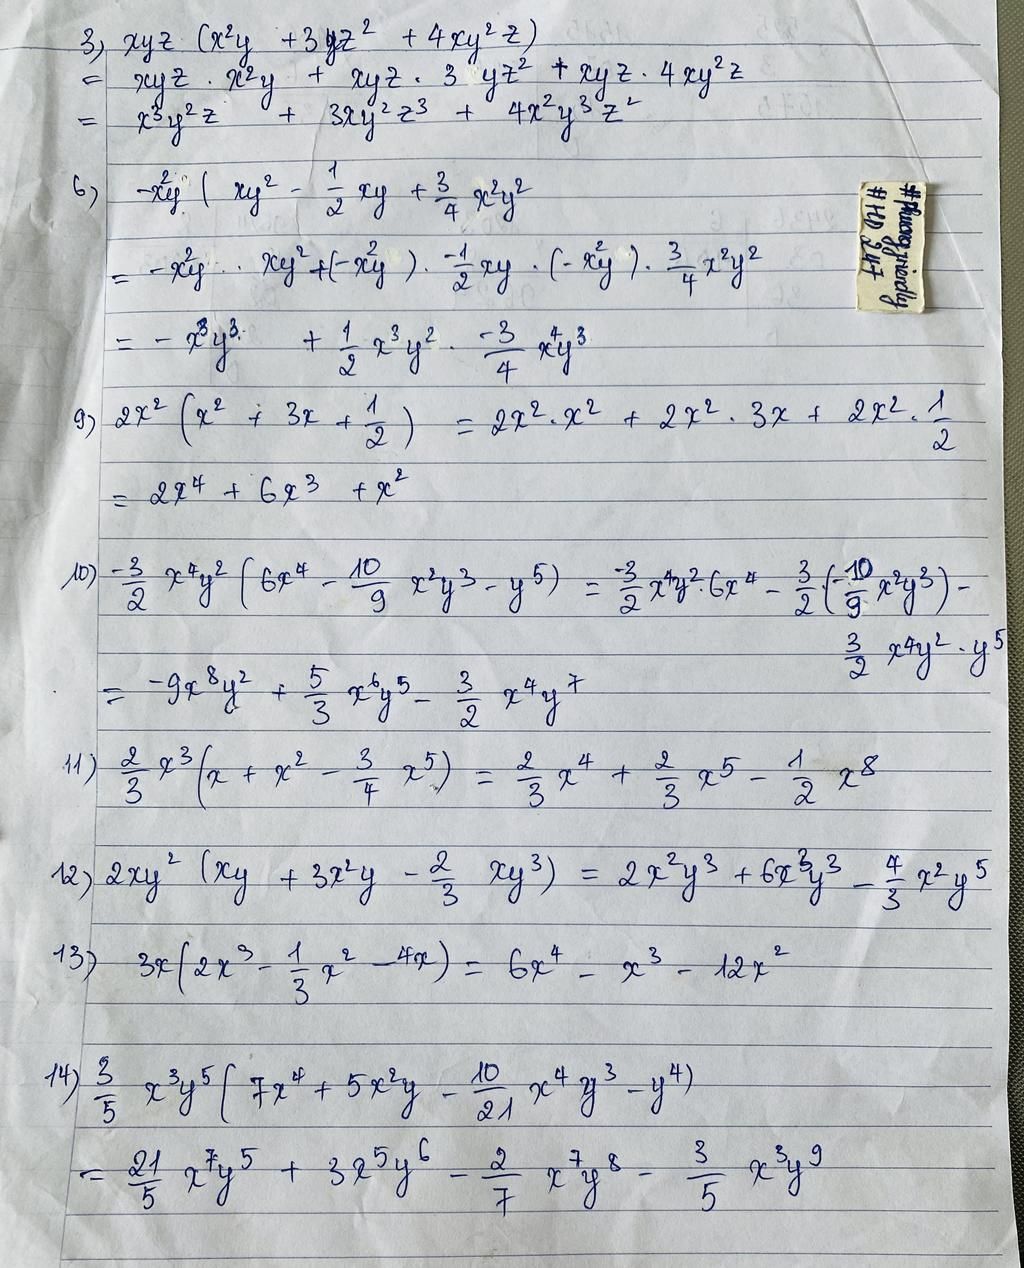 3) xyz (x²y + 3yz² + 4xy²z)
= xyz . x²y + xyz . 3 yz² + xyz . 4xy²z
= x³y²z + 3xy²z³ + 4x²y³z²
6) -x²y ( xy² - 1/2 xy + 3/4 x²y²
= -x²y . . xy² + (-x²y) . -1/2 xy . (-x²y) . 3/4 x²y²
= - x³y³ + 1/2 x³y² . -3/4 x⁴y³
#phuongfriendly
#HD 247
9) 2x² (x² + 3x + 1/2) = 2x² . x² + 2x² . 3x + 2x² . 1/2
= 2x⁴ + 6x³ + x²
10) -3/2 x⁴y² (6x⁴ - 10/9 x²y³ - y⁵) = -3/2 x⁴y² . 6x⁴ - 3/2 (-10/9 x²y³) -
3/2 x⁴y² . y⁵
= -9x⁸y² + 5/3 x⁶y⁵ - 3/2 x⁴y⁷
11) 2/3 x³ (x + x² - 3/4 x⁵) = 2/3 x⁴ + 2/3 x⁵ - 1/2 x⁸
12) 2xy² (xy + 3x²y - 2/3 xy³) = 2x²y³ + 6x³y³ - 4/3 x²y⁵
13) 3x (2x³ - 1/3 x² - 4x) = 6x⁴ - x³ - 12x²
14) 3/5 x³y⁵ (7x⁴ + 5x²y - 10/21 x⁴y³ - y⁴)
= 21/5 x⁷y⁵ + 3x⁵y⁶ - 2/7 x⁷y⁸ - 3/5 x³y⁹